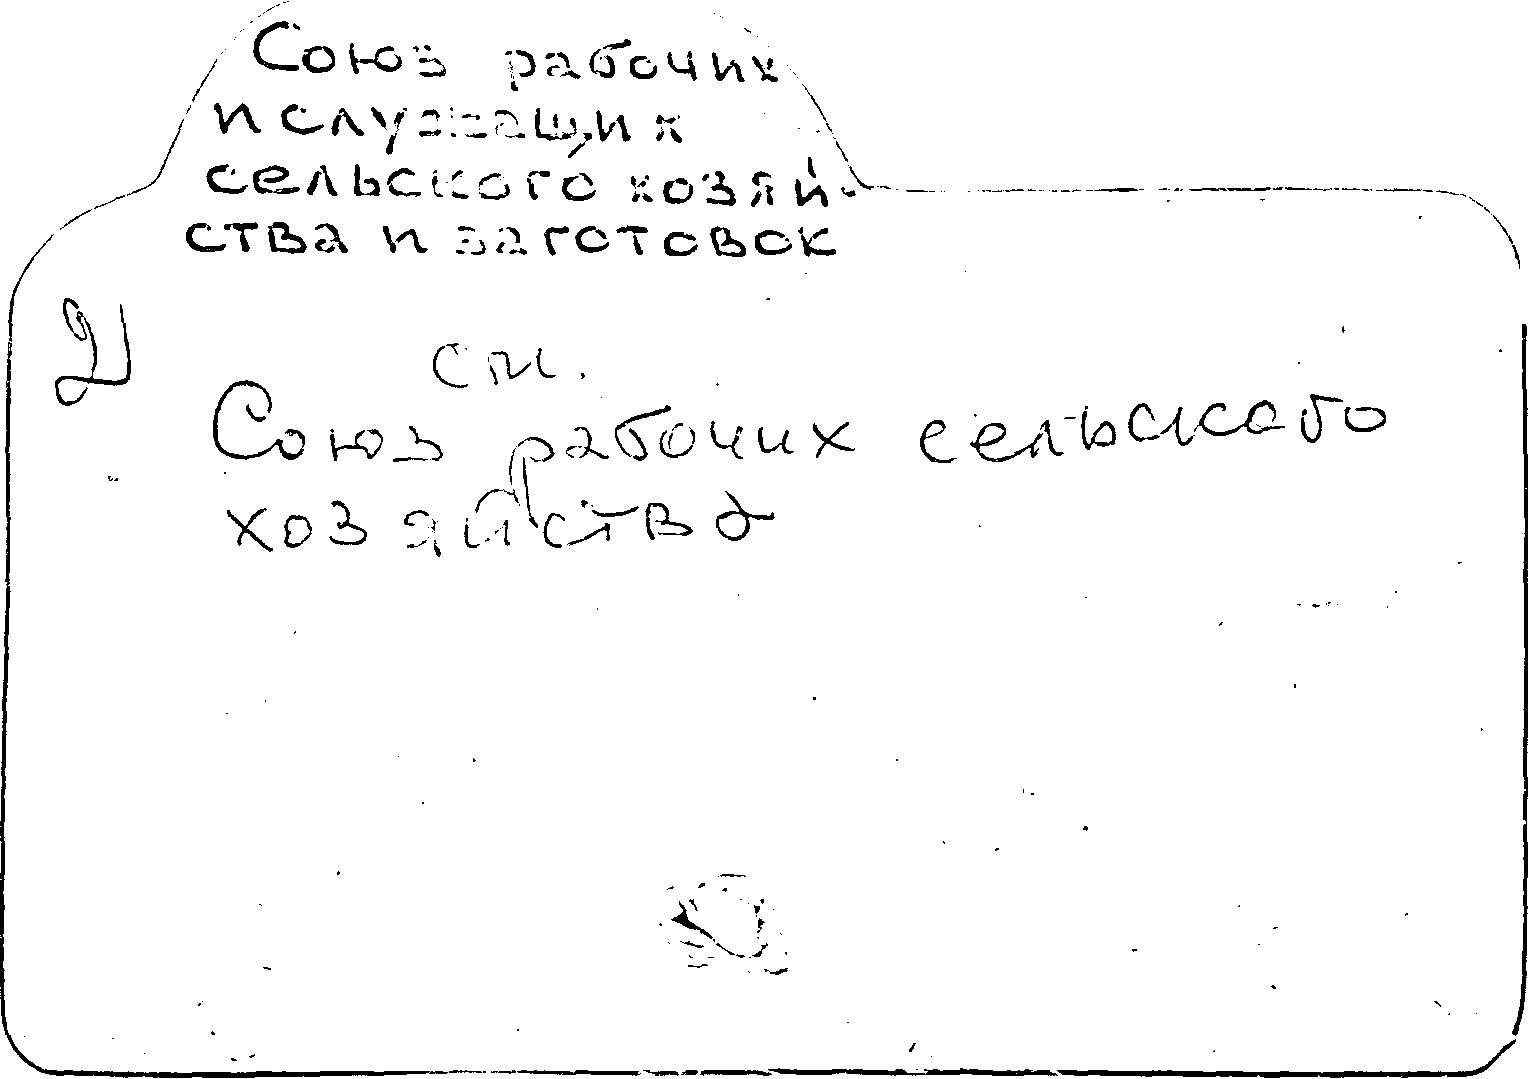 Союз рабочих
и служащих
сельского хозяй-
ства и заготовок
2)
см.
Союз рабочих сельского
хозяйства